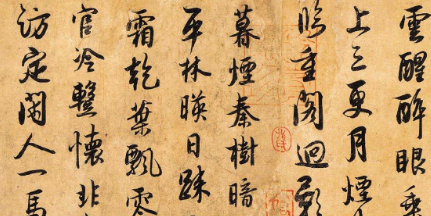 雲醒醉眼乘
上三更月煙
重閣迴
暮煙秦樹暗
平林暎日踈
霜乾葉飄零
官冷懷非
訪定人一馬